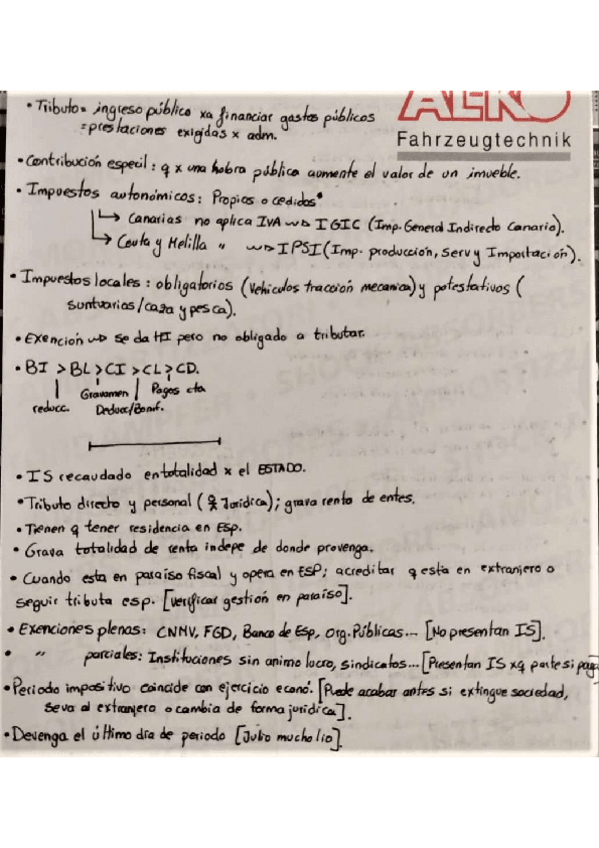 AL-KO
Fahrzeugtechnik
• Tributo = ingreso público xa financiar gastos públicos
= prestaciones exigidas x adm.
• Contribución especil: q x una hobra pública aumente el valor de un imueble.
• Impuestos autonómicos: Propios o cedidos*
↳ Canarias no aplica IVA ⇝ IGIC (Imp. General Indirecto Canario).
↳ Ceuta y Melilla " ⇝ IPSI (Imp. producción, Serv y Importación).
• Impuestos locales: obligatorios (Vehiculos tracción mecanica) y potestativos (
suntuarios/caza y pesca).
• Exención ⇝ se da HI pero no obligado a tributar.
• BI > BL > CI > CL > CD.
reducc. Gravamen Deducc/Bonif. Pagos cta
• IS recaudado en totalidad x el ESTADO.
• Tributo directo y personal (Jurídica); grava renta de entes.
• Tienen q tener residencia en Esp.
• Grava totalidad de renta indepe de donde provenga.
• Cuando esta en paraíso fiscal y opera en ESP; acreditar q esta en extranjero o
seguir tributa esp. [Verificar gestión en paraíso].
• Exenciones plenas: CNMV, FGD, Banco de Esp, Org. Públicas... [No presentan IS].
• " parciales: Instituciones sin animo lucro, sindicatos... [Presentan IS xq parte si paga
• Periodo impositivo coincide con ejercicio econó. [Puede acabar antes si extingue sociedad,
se va al extranjero o cambia de forma jurídica].
• Devenga el último día de periodo [Julio mucho lio].